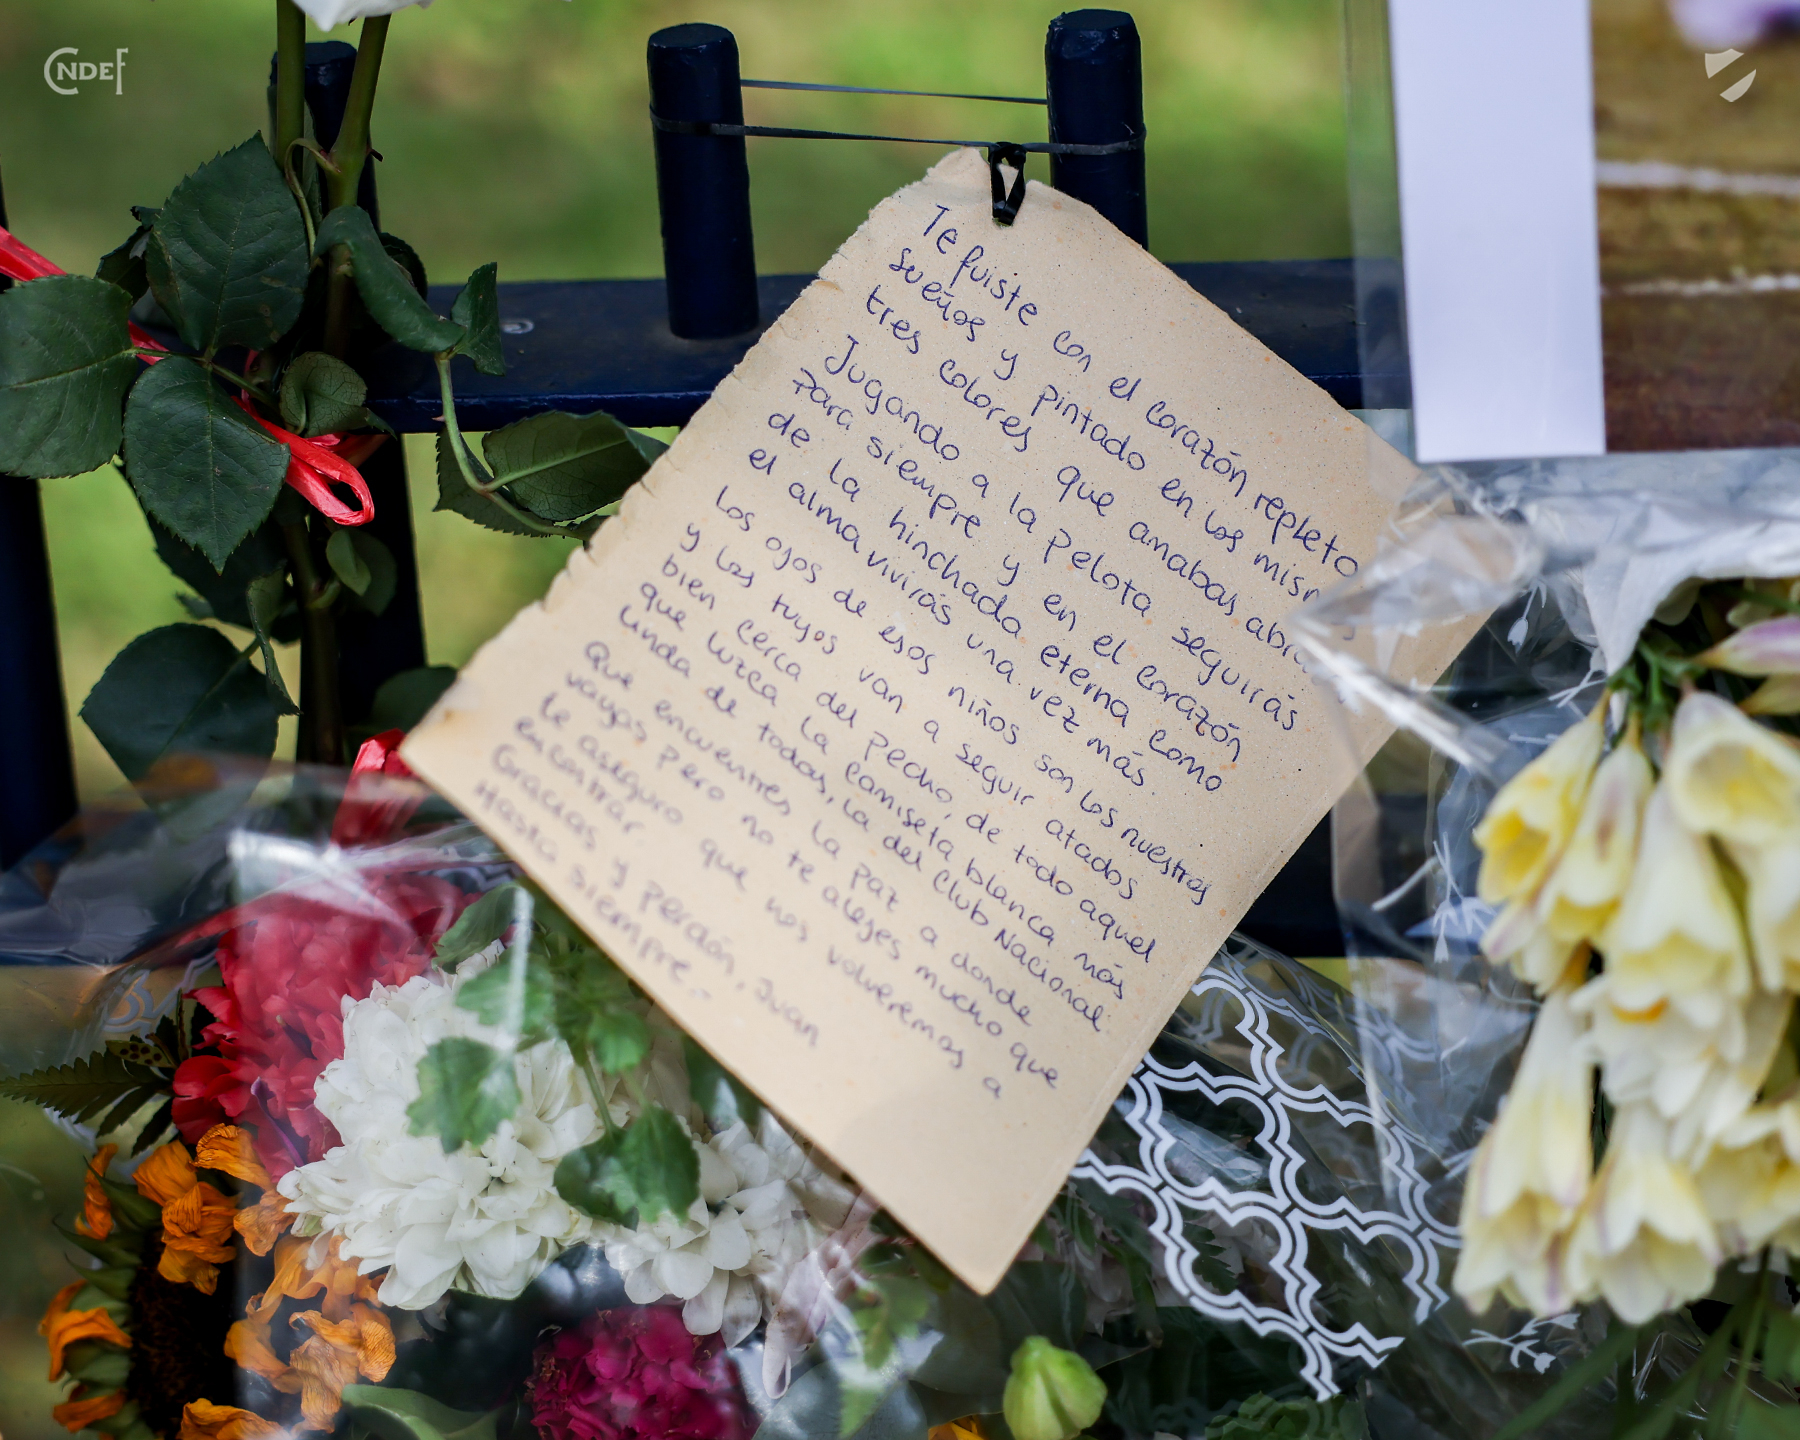 CNDEF
Te fuiste con el corazón repleto
sueños y pintado en los mism
tres colores que amabas abra
Jugando a la pelota seguirás
para siempre y en el corazón
de la hinchada eterna como
el alma vivirás una vez más.
Los ojos de esos niños son los nuestros
y los tuyos van a seguir atados
bien cerca del pecho, de todo aquel
que luzca la camiseta blanca más
linda de todas, la del Club Nacional
Que encuentres la paz a donde
vayas pero no te alejes mucho que
te aseguro que nos volveremos a
encontrar
Gracias y perdón, Juan
Hasta siempre.-